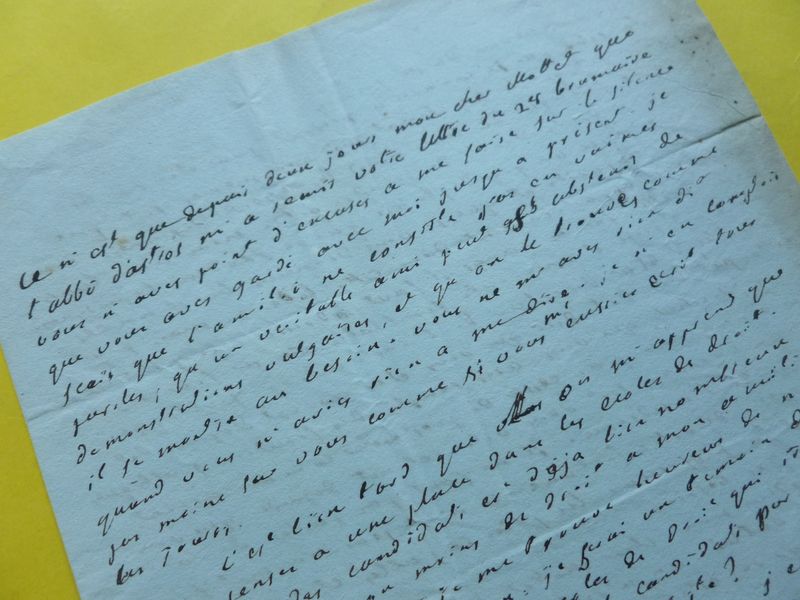 ce n'est que depuis deux jours mon cher Mottet que
l'abbé d'astros m'a remis votre lettre du 25 brumaire
vous n'aves point d'excuses a me faire sur le silence
que vous aves gardé avec moi jusqu'a présent. je
scais que l'amitié ne consiste pas en vaines
paroles, qu'un véritable ami peut s'abstenir de
demonstrations vulgaires, et qu'on le trouve comme
il se montre au besoin. vous ne m'avés rien dit
quand vous n'avies rien a me dire. je n'en comptois
pas moins sur vous comme si vous m'eussiez écrit tous
les jours.
c'est bien tard que l'on m'apprend que
penser a une place dans les écoles de droit.
des candidats est déja bien nombreuse
moins de droit a mon amiti
je me trouve heureux de
je serai un temoin d
de droit qui
candidats par